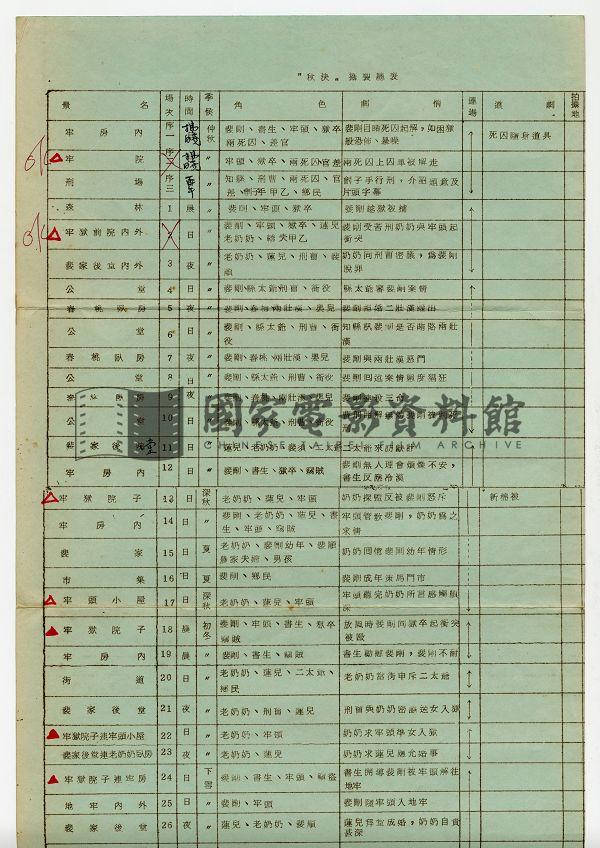 "秋決" 拍製總表
景名 場次 時間 季候 角色 劇情 連場 道劇 拍攝地
牢房內 序一 仲秋 裴剛、書生、牢頭、獄卒 兩死囚、差官 裴剛目睹死囚起解，如困獸般恐怖、暴燥 死囚隨身道具
牢院 序二 〃 牢頭、獄卒、兩死囚官差 兩死囚上囚車被解走
刑場 序三 〃 知縣、刑曹、兩死囚、官差、劊子手甲乙、鄉民 劊子手行刑，介紹頭銜及片頭字幕
森林 1 晨 〃 裴剛、牢頭、獄卒 裴剛越獄被捕
牢獄前院內外 2 日 〃 裴剛、牢頭、獄卒、蓮兒 老奶奶、轎夫甲乙 裴剛受苦刑奶奶與牢頭起衝突
裴家後堂內外 3 夜 〃 老奶奶、蓮兒、刑曹、裴順 奶奶向刑曹密議，為裴剛脫罪
公堂 4 日 〃 裴剛、縣太爺刑曹、衙役 縣太爺審裴剛案情
春桃臥房 5 夜 〃
公堂 6 日 〃 裴剛、縣太爺、刑曹、衙役
春桃臥房 7 夜 〃 裴剛、春桃、兩壯漢、嬰兒 裴剛與兩壯漢惡鬥
公堂 8 日 〃 裴剛、縣太爺、刑曹、衙役
9 夜
公堂 10 日
裴家後堂 11 日
牢房內 12 日 〃 裴剛、書生、獄卒、竊賊 裴剛無人理會煩燥不安，書生反應冷漠
牢獄院子 13 日 深秋 老奶奶、蓮兒、牢頭 奶奶探監反被裴剛怒斥 新棉被
牢房內 14 日 〃 裴剛、老奶奶、蓮兒、書生、牢頭、竊賊 牢頭管教裴剛，奶奶為之求情
裴家 15 日 夏 老奶奶、裴剛幼年、裴順 農家夫婦、男孩 奶奶回憶裴剛幼年情形
市集 16 日 夏 裴剛、鄉民 裴剛成年策馬鬥市
牢頭小屋 17 日 深秋 老奶奶、蓮兒、牢頭 牢頭聽完奶奶所言感觸頗深
牢獄院子 18 晨 初冬 裴剛、牢頭、書生、獄卒 竊賊 放風時裴剛向獄卒起衝突被毆
牢房內 19 晨 〃 裴剛、書生、竊賊 書生勸慰裴剛，裴剛不耐
街道 20 日 〃 老奶奶、蓮兒、二太爺、鄉民 老奶奶當街申斥二太爺
裴家後堂 21 夜 〃 老奶奶、刑曹、蓮兒 刑曹與奶奶密議送女入獄
牢獄院子連牢頭小屋 22 日 〃 老奶奶、牢頭 奶奶求牢頭準女入獄
裴家後堂連老奶奶臥房 23 夜 〃 老奶奶、蓮兒 奶奶求蓮兒應允婚事
牢獄院子連牢房 24 日 下雪 裴剛、書生、牢頭、竊盜 書生開導裴剛被牢頭解往地牢
地牢內外 25 日 〃 裴剛、牢頭 裴剛隨牢頭入地牢
裴家後堂 26 夜 〃 蓮兒、老奶奶、裴順 蓮兒拜堂成婚，奶奶自責甚深
國家電影資料館
CHINESE TAIPEI FILM ARCHIVE